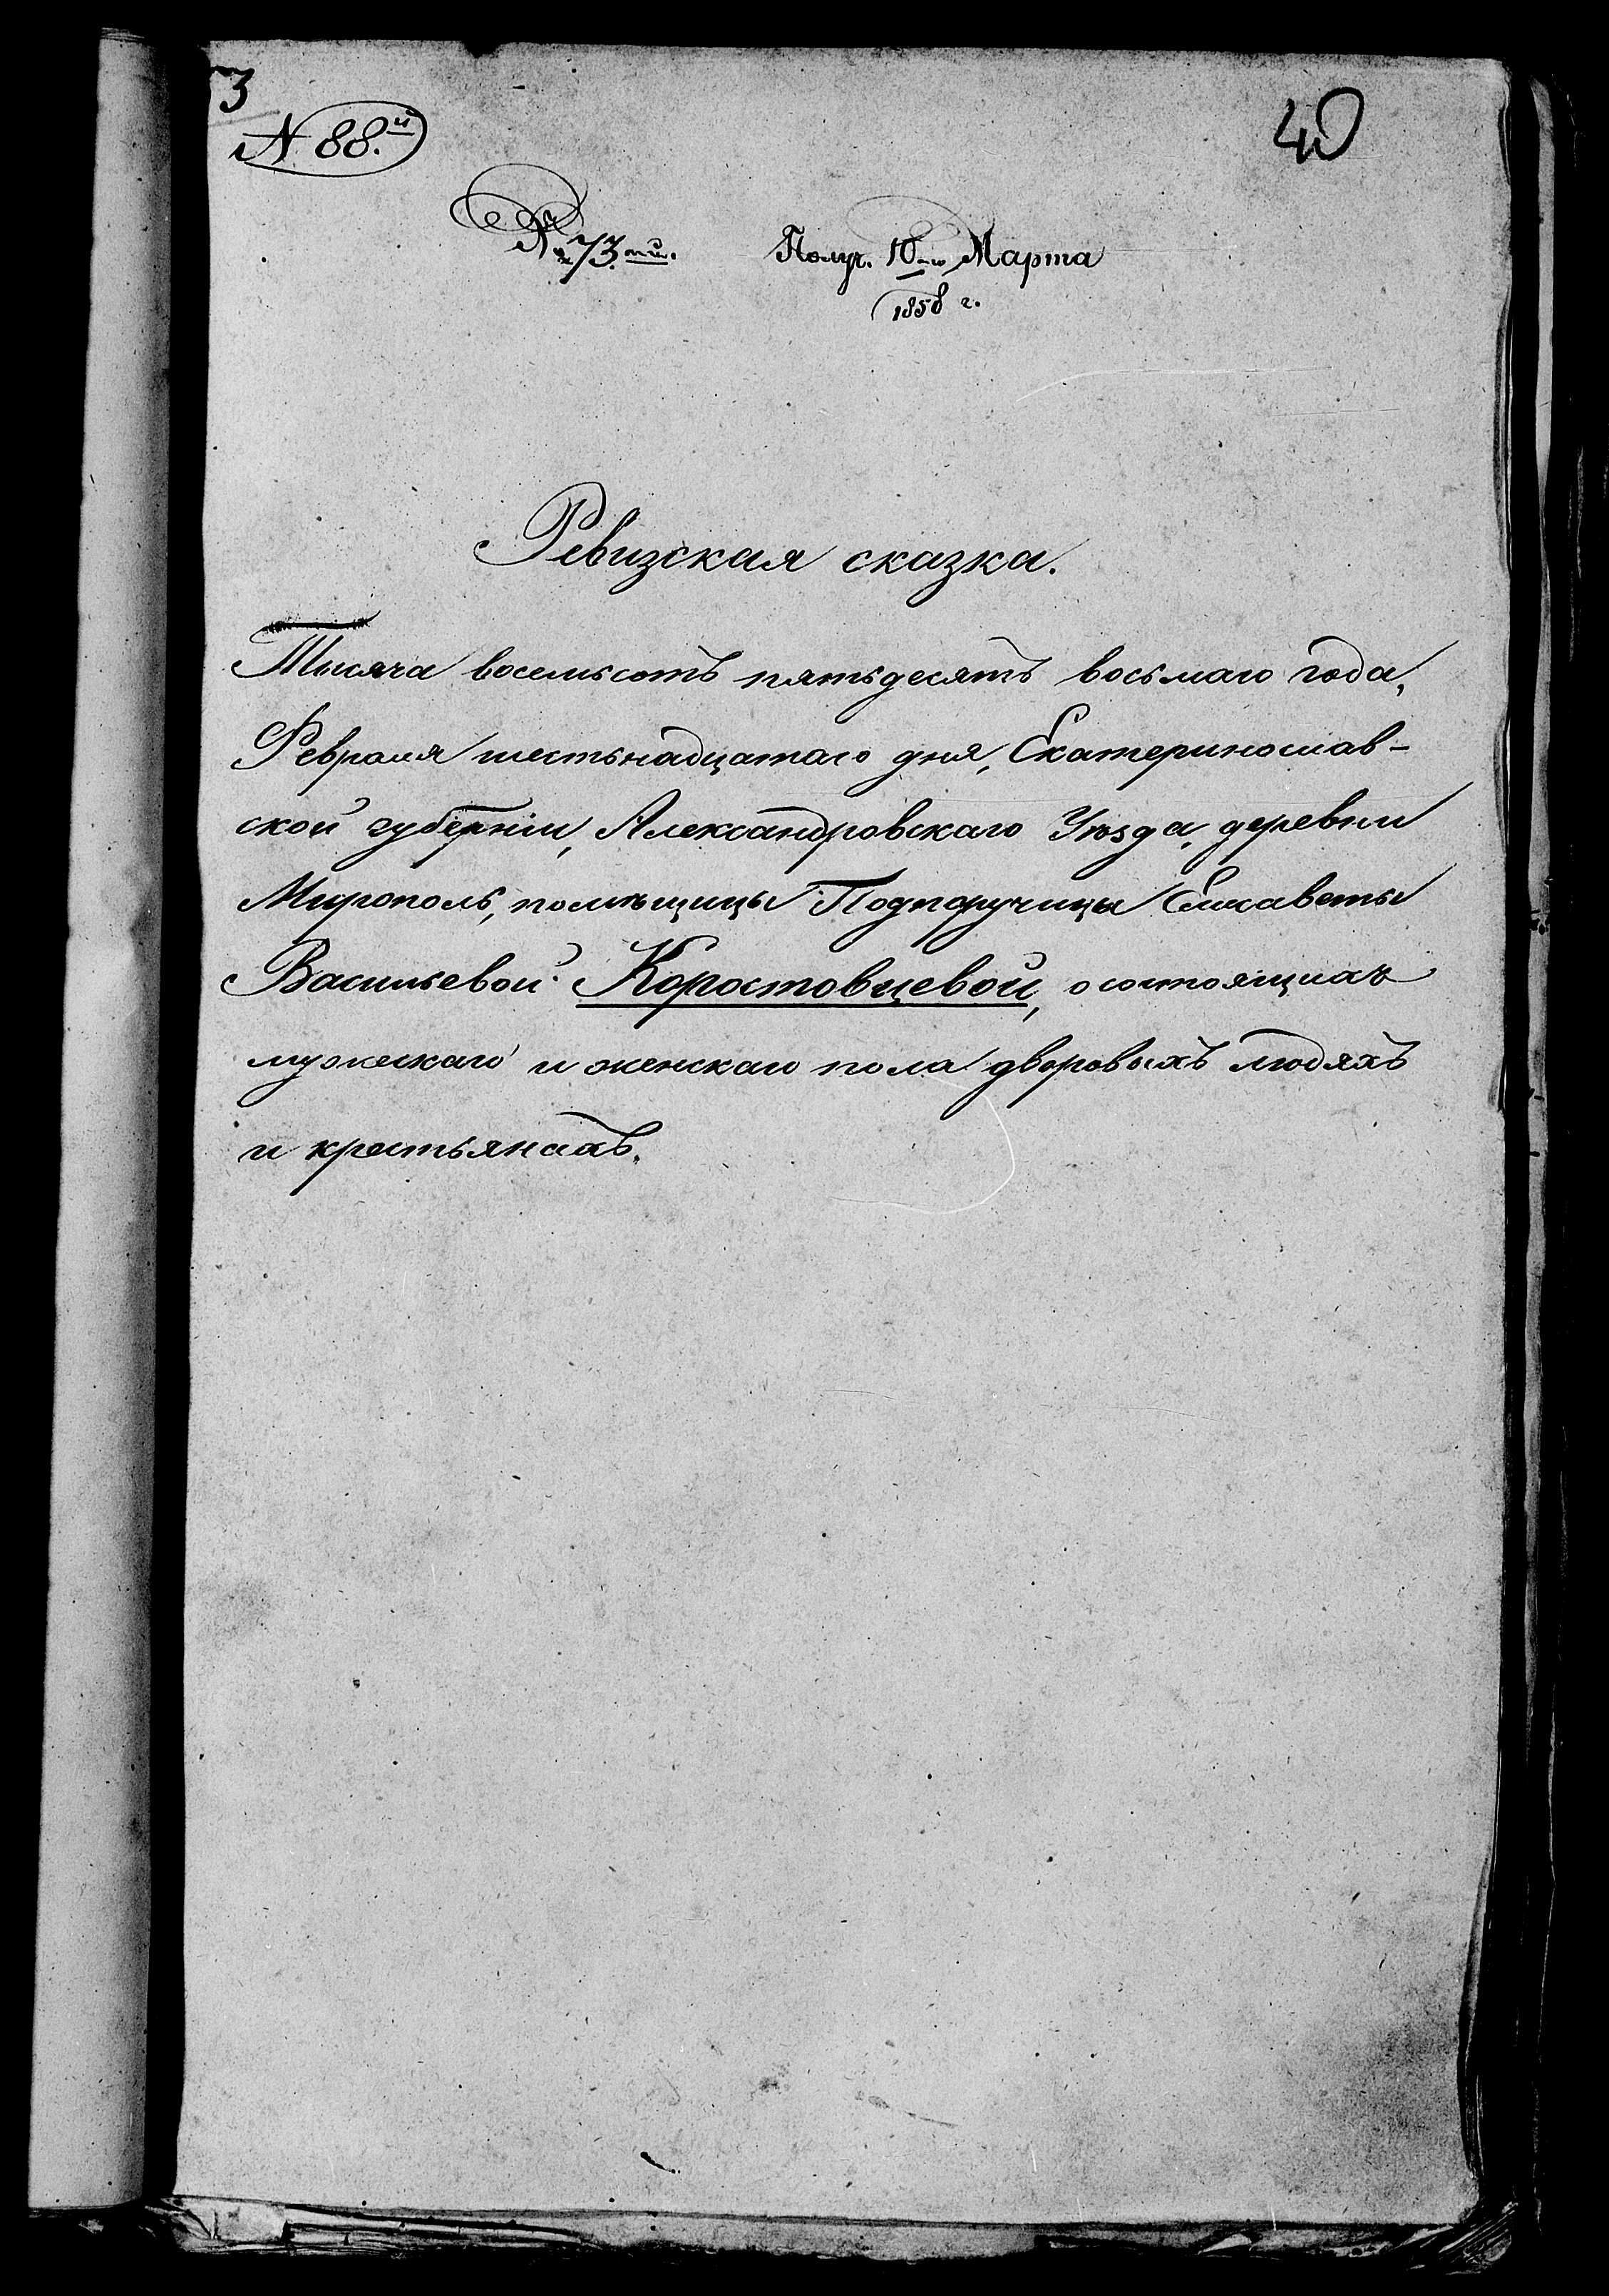 73
N 88.й
40
№ 73.ий. Получ. 10-го Марта
1858 г.
Ревизская сказка.
Тысяча восемьсотъ пятьдесятъ восьмаго года,
Февраля шестьнадцатаго дня, Екатеринослав-
ской губерніи, Александровскаго Уѣзда, деревни
Мирополь, помѣщицы Подпоручицы Елисаветы
Васильевой Коростовцевой, о состоящихъ
мужескаго и женскаго пола дворовыхъ людяхъ
и крестьянахъ.